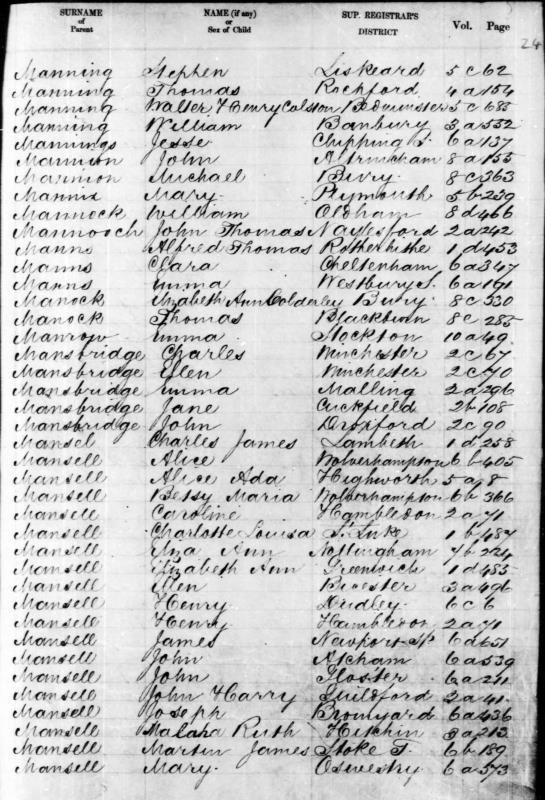 SURNAME of Parent NAME (if any) or Sex of Child SUP. REGISTRAR'S DISTRICT Vol. Page
24
Manning Stephen Liskeard 5 c 62
Manning Thomas Rochford 4 a 154
Manning Walter Henry Colston Bedminster 5 c 683
Manning William Banbury 3 a 532
Mannings Jesse Chipping S. 6 a 137
Mannion John Altrincham 8 a 155
Mannion Michael Bury 8 c 363
Mannix Mary Plymouth 5 b 239
Mannock William Oldham 8 d 466
Mannooch John Thomas Naylesford 2 a 242
Manns Alfred Thomas Rotherhithe 1 d 453
Manns Clara Cheltenham 6 a 347
Manns Emma Westbury S. 6 a 191
Manock Elizabeth Ann Colderley Bury 8 c 530
Manock Thomas Blackburn 8 c 285
Manrow Emma Stockton 10 a 49
Mansbridge Charles Winchester 2 c 67
Mansbridge Ellen Winchester 2 c 70
Mansbridge Emma Malling 2 a 296
Mansbridge Jane Cuckfield 2 b 108
Mansbridge John Droxford 2 c 90
Mansel Charles James Lambeth 1 d 258
Mansell Alice Wolverhampton 6 b 405
Mansell Alice Ada Highworth 5 a 8
Mansell Betsy Maria Wolverhampton 6 b 366
Mansell Caroline Hambledon 2 a 71
Mansell Charlotte Louisa St. Luke 1 b 487
Mansell Eliza Ann Nottingham 7 b 224
Mansell Elizabeth Ann Greenwich 1 d 485
Mansell Ellen Bicester 3 a 496
Mansell Henry Dudley 6 c 6
Mansell Henry Hambledon 2 a 71
Mansell James Newport 6 a 651
Mansell John Atcham 6 a 539
Mansell John Gloster 6 a 211
Mansell John Harry Guildford 2 a 41
Mansell Joseph Bromyard 6 a 436
Mansell Malaha Ruth Hitchin 3 a 213
Mansell Martin James Stoke T. 6 b 189
Mansell Mary Oswestry 6 a 573